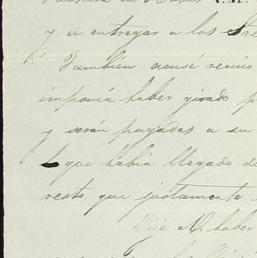 y a entregar a los Sre
Tambien acusé recivo
imponia haber girado p
y serán pagadas a su
que habia llegado de
resto, que justamente
Dije a V. haber